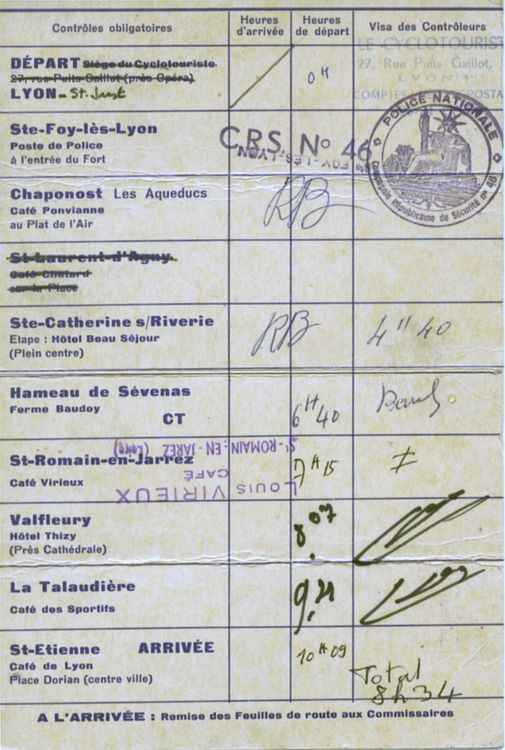 Contrôles obligatoires
Heures d'arrivée
Heures de départ
Visa des Contrôleurs
DÉPART Siège du Cyclotouriste
27, rue Puits Gaillot (près Opéra)
LYON - St. Just
0H
LE CYCLOTOURISTE
27, Rue Puits Gaillot,
LYON 1er
Ste-Foy-lès-Lyon
Poste de Police
à l'entrée du Fort
C.R.S. No 46
STE FOY-LÈS-LYON
POLICE NATIONALE
Compagnie Républicaine de Sécurité n° 46
Chaponost Les Aqueducs
Café Ponvianne
au Plat de l'Air
RB
St-Laurent-d'Agny
Café Chatard
sur la Place
Ste-Catherine s/Riverie
Etape : Hôtel Beau Séjour
(Plein centre)
RB
4H40
Hameau de Sévenas
Ferme Baudoy
CT
6H40
St-Romain-en-Jarrez
Café Virieux
St-ROMAIN-EN-JAREZ (Loire)
CAFÉ
LOUIS VIRIEUX
7H15
I
Valfleury
Hôtel Thizy
(Près Cathédrale)
8.07
La Talaudière
Café des Sportifs
9,21
St-Etienne ARRIVÉE
Café de Lyon
Place Dorian (centre ville)
10H09
Total
8h34
A L'ARRIVÉE : Remise des Feuilles de route aux Commissaires